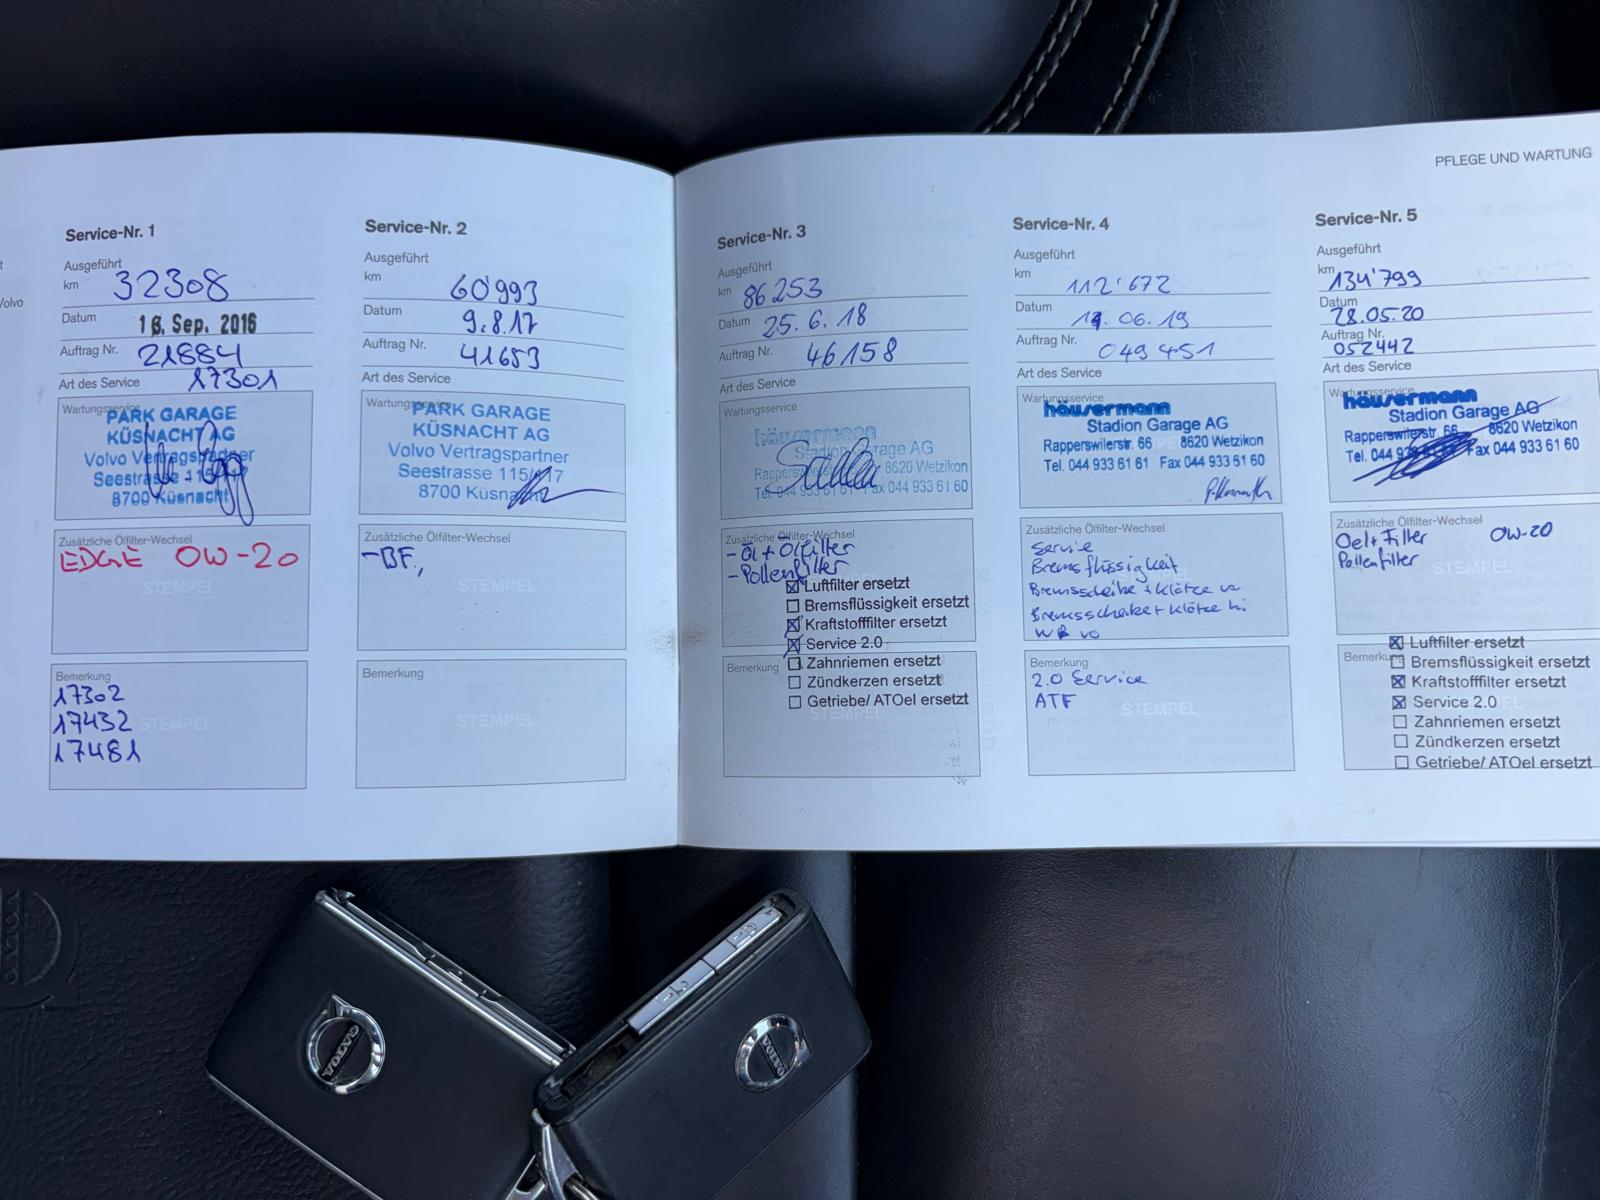 PFLEGE UND WARTUNG
Service-Nr. 1
Ausgeführt
km 32308
Datum 16. Sep. 2016
Auftrag Nr. 21884
Art des Service 17301
Wartungsservice
PARK GARAGE
KÜSNACHT AG
Volvo Vertragspartner
Seestrasse 115/117
8700 Küsnacht
Zusätzliche Ölfilter-Wechsel
EDGE 0W-20
STEMPEL
Bemerkung
17302
17432
STEMPEL
17481
Service-Nr. 2
Ausgeführt
km 60'993
Datum 9.8.17
Auftrag Nr. 41653
Art des Service
Wartungsservice
PARK GARAGE
KÜSNACHT AG
Volvo Vertragspartner
Seestrasse 115/117
8700 Küsnacht
Zusätzliche Ölfilter-Wechsel
-BF.,
STEMPEL
Bemerkung
STEMPEL
Service-Nr. 3
Ausgeführt
km 86253
Datum 25.6.18
Auftrag Nr. 46158
Art des Service
Wartungsservice
häusermann
Stadion Garage AG
8620 Wetzikon
Tel. 044 933 61 61 Fax 044 933 61 60
Zusätzliche Ölfilter-Wechsel
- Öl + Ölfilter
- Pollenfilter
Luftfilter ersetzt
Bremsflüssigkeit ersetzt
Kraftstofffilter ersetzt
Service 2.0
Bemerkung
Zahnriemen ersetzt
Zündkerzen ersetzt
Getriebe/ ATOel ersetzt
STEMPEL
Service-Nr. 4
Ausgeführt
km 112'672
Datum 06.19
Auftrag Nr. 049451
Art des Service
Wartungsservice
häusermann
Stadion Garage AG
Rapperswilerstr. 66 8620 Wetzikon
Tel. 044 933 61 61 Fax 044 933 61 60
Zusätzliche Ölfilter-Wechsel
Service
Bremsflüssigkeit
Bremsscheibe + Klötze
Bremsscheibe + Klötze hi
WB vo
Bemerkung
2.0 Service
ATF
STEMPEL
Service-Nr. 5
Ausgeführt
km 134'799
Datum
28.05.20
Auftrag Nr.
052442
Art des Service
Wartungsservice
häusermann
Stadion Garage AG
Rapperswilerstr. 66 8620 Wetzikon
Tel. 044 Fax 044 933 61 60
Zusätzliche Ölfilter-Wechsel
Oel + Filter 0W-20
Pollenfilter
STEMPEL
Luftfilter ersetzt
Bemerkung
Bremsflüssigkeit ersetzt
Kraftstofffilter ersetzt
Service 2.0
Zahnriemen ersetzt
Zündkerzen ersetzt
Getriebe/ ATOel ersetzt
VOLVO
VOLVO